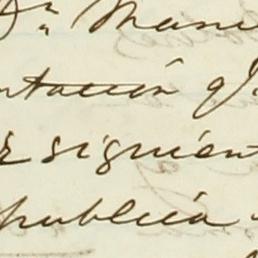 Dn Manu
ntación q
siguien
publica